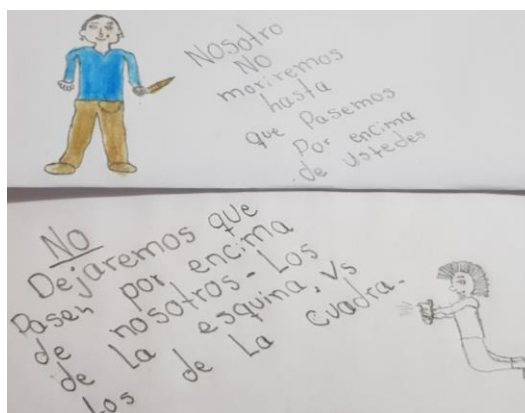 Nosotro
No
moriremos
hasta
que Pasemos
Por encima
de Ustedes
No
Dejaremos que
Pasen por encima
de nosotros - Los
de La esquina, Vs
Los de La cuadra.